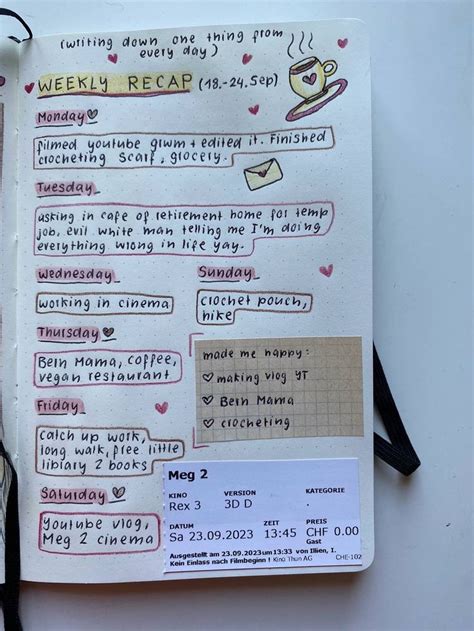 (writing down one thing from
every day)
WEEKLY RECAP (18.-24.Sep)
Monday
filmed youtube grwm + edited it. Finished
crocheting scarf, grocery.
Tuesday
asking in cafe of retirement home for temp
job. evil white man telling me I'm doing
everything wrong in life yay.
Wednesday
working in cinema
Sunday
crochet pouch,
hike
Thursday
Bern Mama, coffee,
vegan restaurant
made me happy:
making vlog YT
Bern Mama
crocheting
Friday
catch up work,
long walk, free little
library 2 books
Saturday
Youtube vlog,
Meg 2 cinema
Meg 2
KINO VERSION KATEGORIE
Rex 3 3D D .
DATUM ZEIT PREIS
Sa 23.09.2023 13:45 CHF 0.00
Gast
Ausgestellt am 23.09.2023 um 13:33 von Illien, I.
Kein Einlass nach Filmbeginn ! Kino Thun AG CHE-102